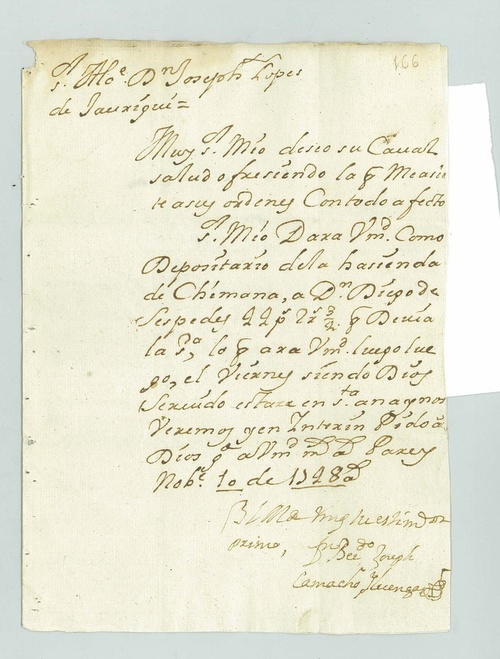 166
s.r Alc.e D.n Joseph Lopes
de Jauregui =
Muy s.r Mio deseo su Caval
salud ofresiendo la q̃ Measis
te asus ordenes Contodo afecto
s.r Mio Dara Vm.d Como
Depositario dela hasienda
de Chimana, a D.n Diego de
Sespedes 44 p.s 2 r.s 3/4 q̃ Devia
la s.ra, lo q̃ ara Vm.d luego lue
go, el Viernes siendo Dios
Servido estare en s.ta ana y nos
Veremos y en Interin Pido a
Dios g.e a Vm.d m.s a.s Pares
Nob.e 10 de 1748 a.s
primo,
Joseph
Camacho